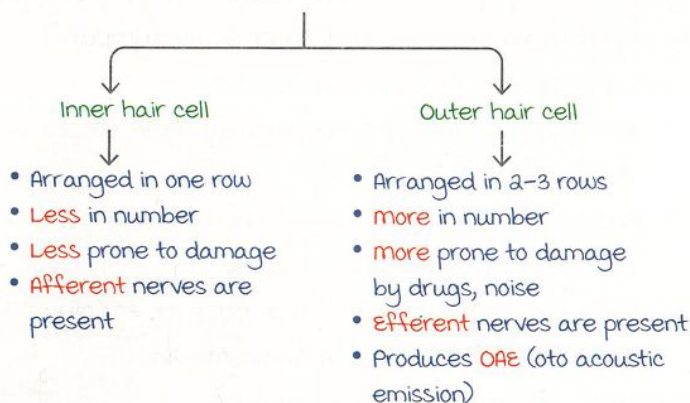 Inner hair cell
• Arranged in one row
• Less in number
• Less prone to damage
• Afferent nerves are
present
Outer hair cell
• Arranged in 2-3 rows
• more in number
• more prone to damage
by drugs, noise
• Efferent nerves are present
• Produces OAE (oto acoustic
emission)